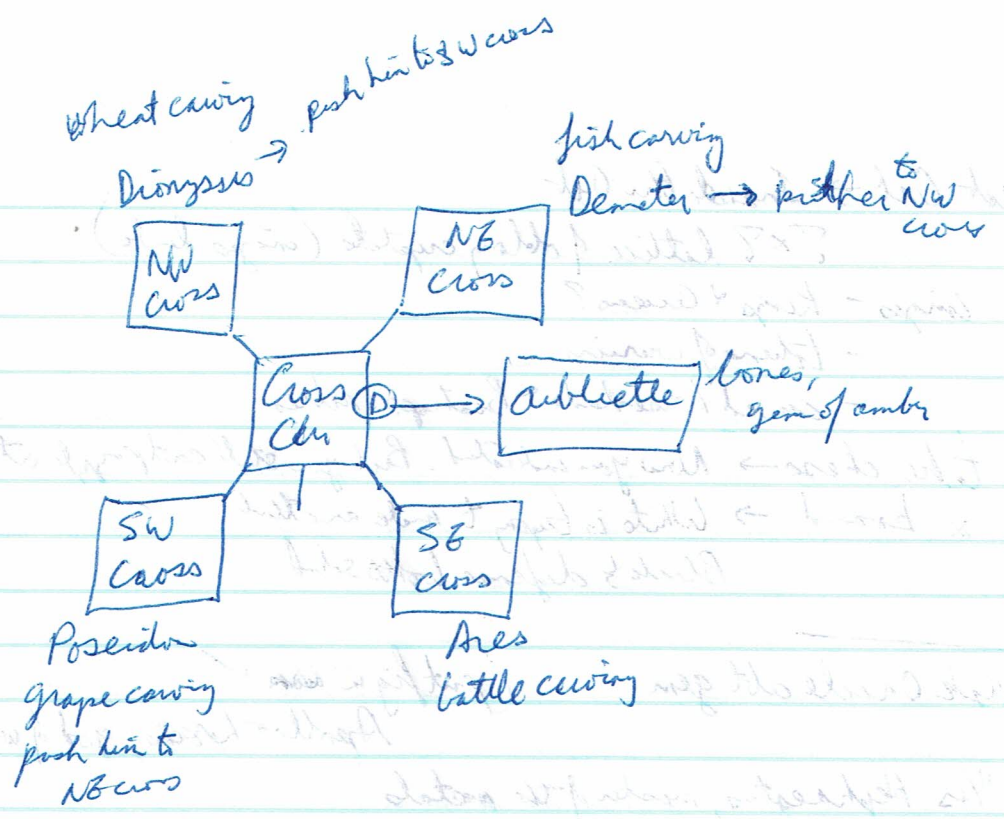 wheat carving
push him to SW cross
Dionyssis →
fish carving
Demeter → push her to NW
cross
NW
cross
NE
cross
Cross
Chu
D
oubliette
bones,
gem of amber
SW
Cross
SE
cross
Poseidon
grape carving
push him to
NE cross
Ares
battle carving